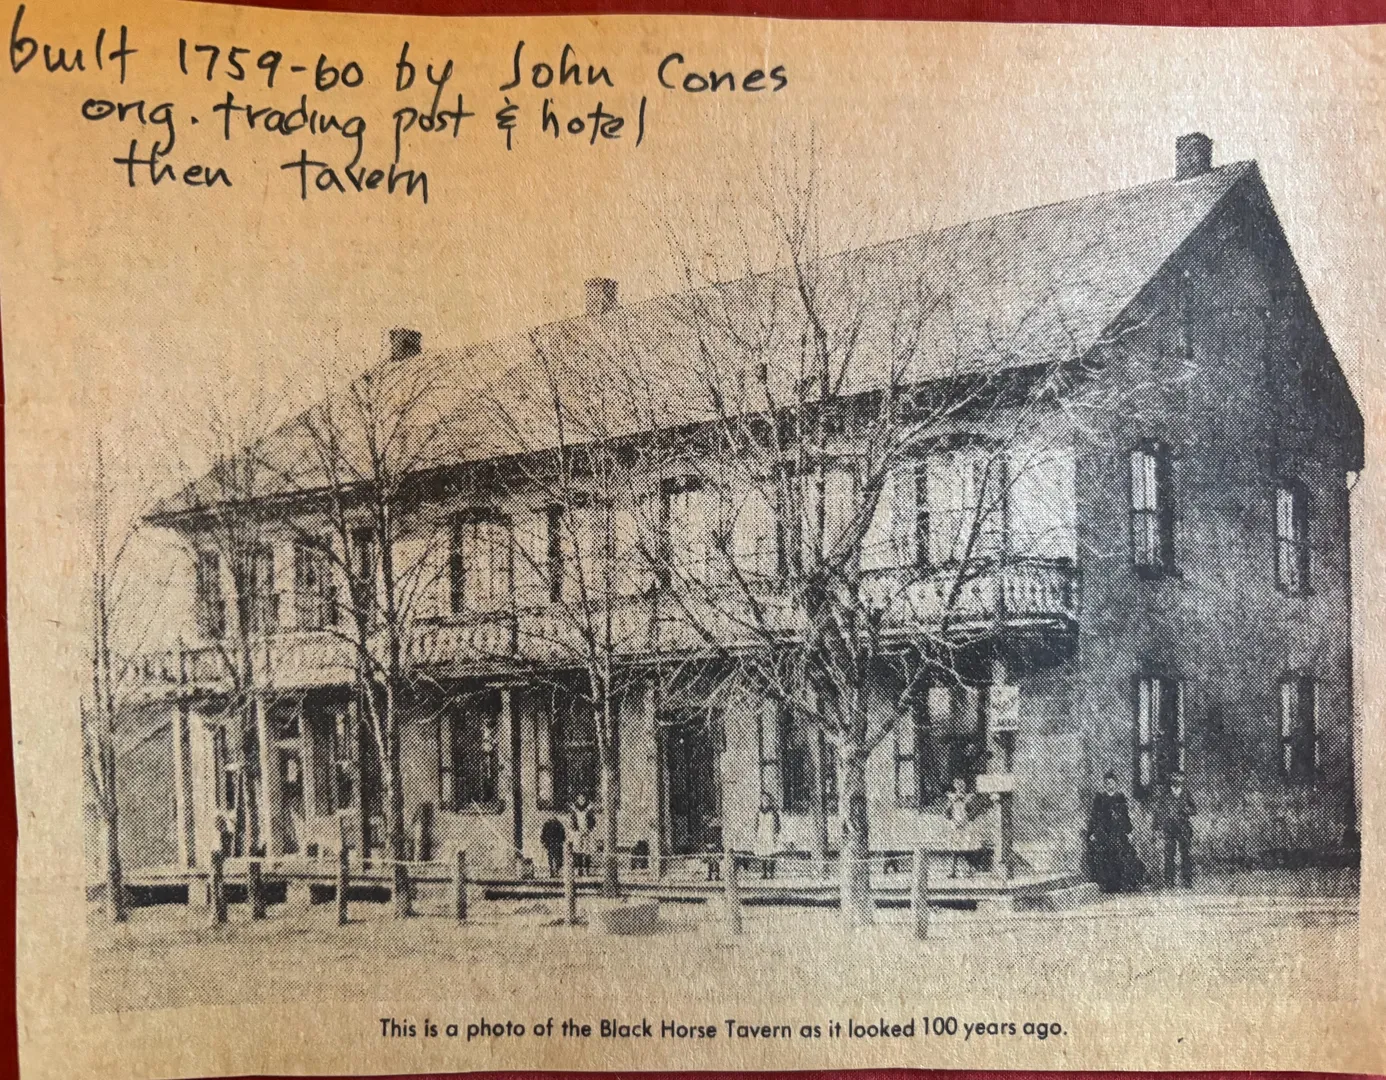 built 1759-60 by John Cones
orig. trading post & hotel
then tavern
This is a photo of the Black Horse Tavern as it looked 100 years ago.